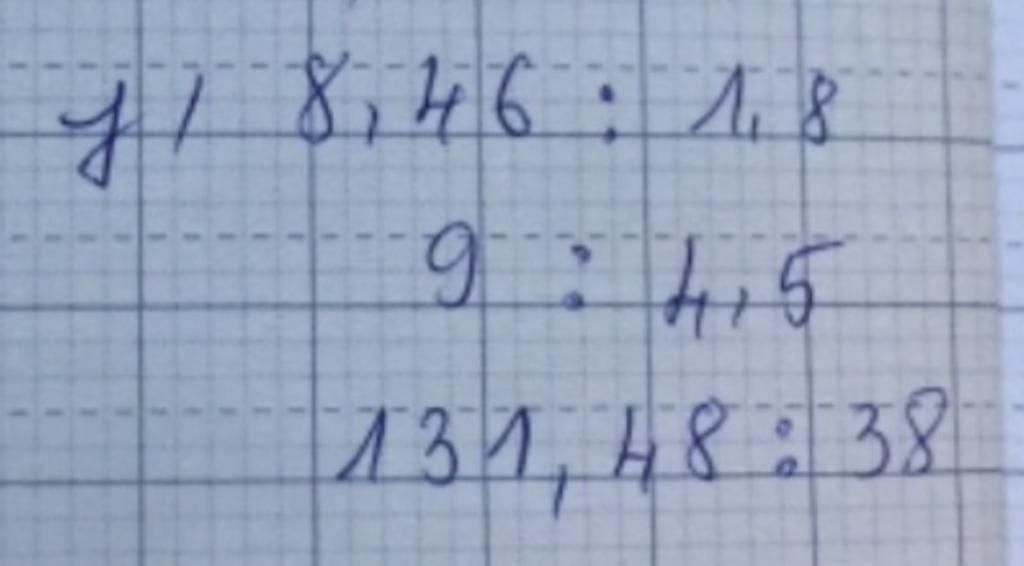 y, 8,46 : 1,8
9 : 4,5
131,48 : 38